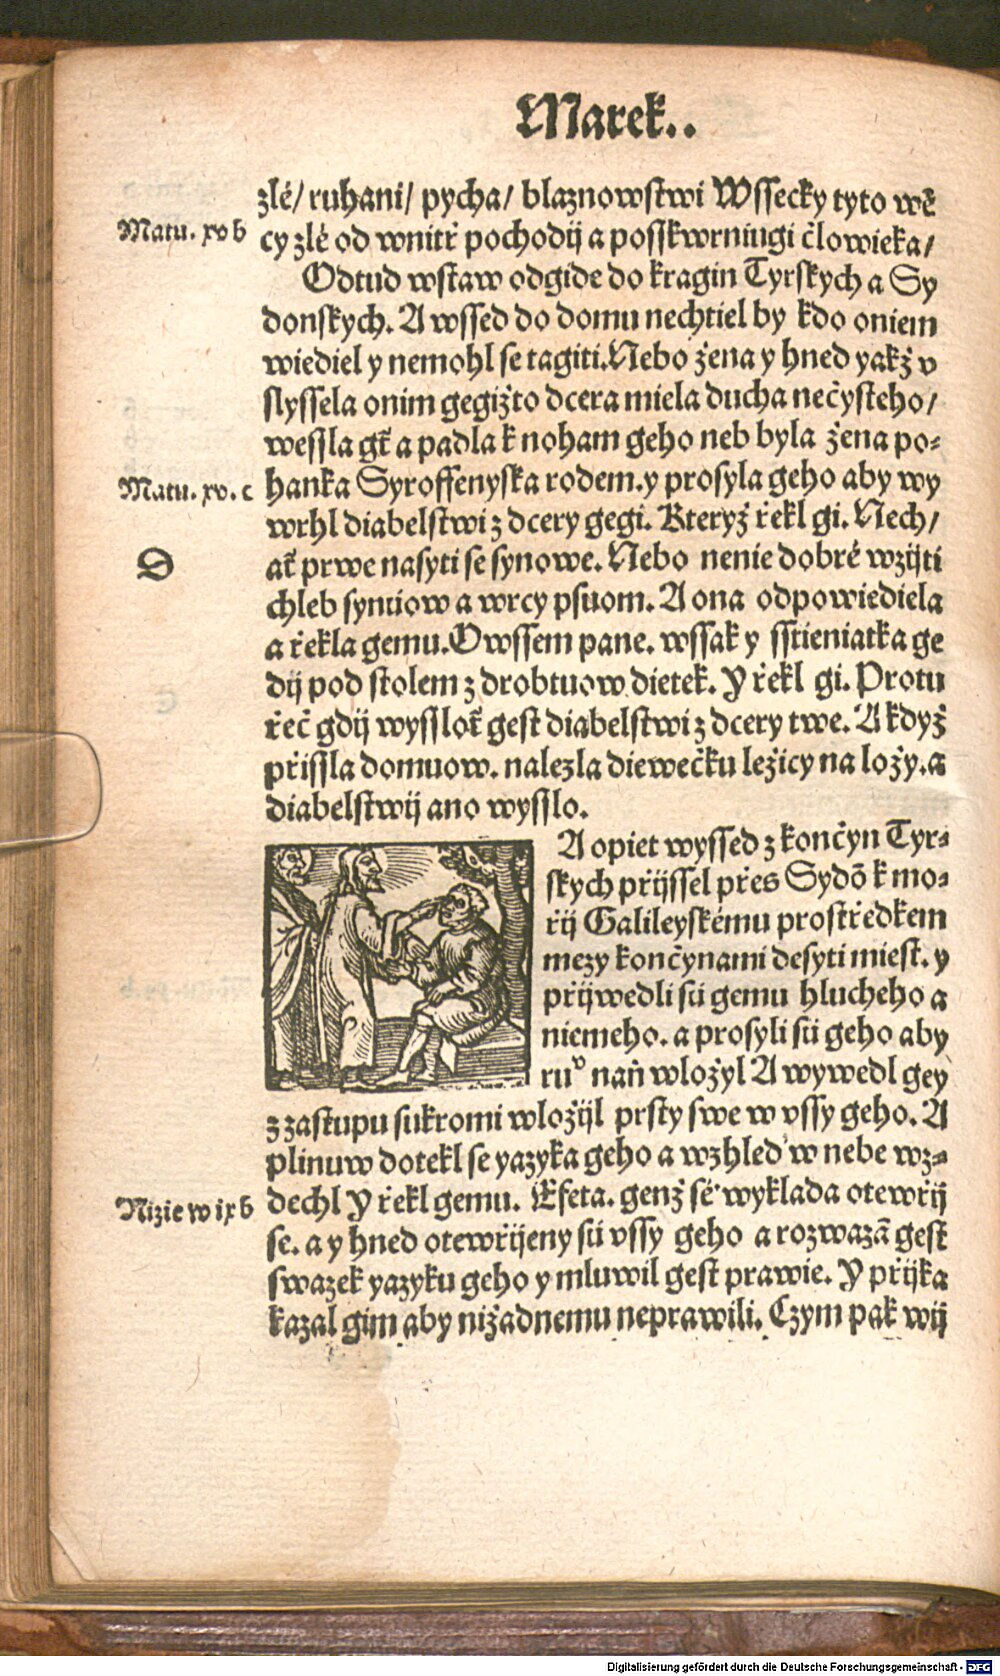 Marek..
zlé/ ruhani/ pycha/ blaznowstwi Wssecky tyto wě
Matu. xv b
cy zlé od wnitř pochodij a posskwrniugi člowieka/
Odtud wstaw odgide do kragin Tyrskych a Sy
donskych. A wssed do domu nechtiel by kdo oniem
wiediel y nemohl se tagiti. Nebo žena y hned yakž v
slyssela onim gegižto dcera miela ducha nečysteho/
wessla gt̃ a padla k noham geho neb byla žena po⸗
Matu. xv. c
hanka Syroffenyska rodem. y prosyla geho aby wy
wrhl diabelstwi z dcery gegi. Kteryž řekl gi. Nech/
D
ať prwe nasyti se synowe. Nebo nenie dobré wzijti
chleb synuow a wrcy psuom. A ona odpowiediela
a řekla gemu. Owssem pane. wssak y sstieniatka ge
dij pod stolem z drobtuow dietek. Y řekl gi. Protu
řeč gdij wyssloť gest diabelstwi z dcery twe. A když
přissla domuow. nalezla diewečku ležicy na loži. a
diabelstwij ano wysslo.
A opiet wyssed z končyn Tyr⸗
skych přijssel přes Sydō k mo⸗
řij Galileyskému prostředkem
mezy končynami desyti miest. y
přijwedli sú gemu hlucheho a
niemeho. a prosyli sú geho aby
ruᵒ naň wložyl A wywedl gey
z zastupu sukromi wložijl prsty swe w vssy geho. A
plinuw dotekl se yazyka geho a wzhled w nebe wz⸗
Nizie w ix b
dechl Y řekl gemu. Efeta. genž sě wyklada otewřij
se. a y hned otewřijeny sú vssy geho a rozwazã gest
swazek yazyku geho y mluwil gest prawie. Y přijka
kazal gim aby nižadnemu neprawili. Czym pak wij
Digitalisierung gefördert durch die Deutsche Forschungsgemeinschaft - DFG